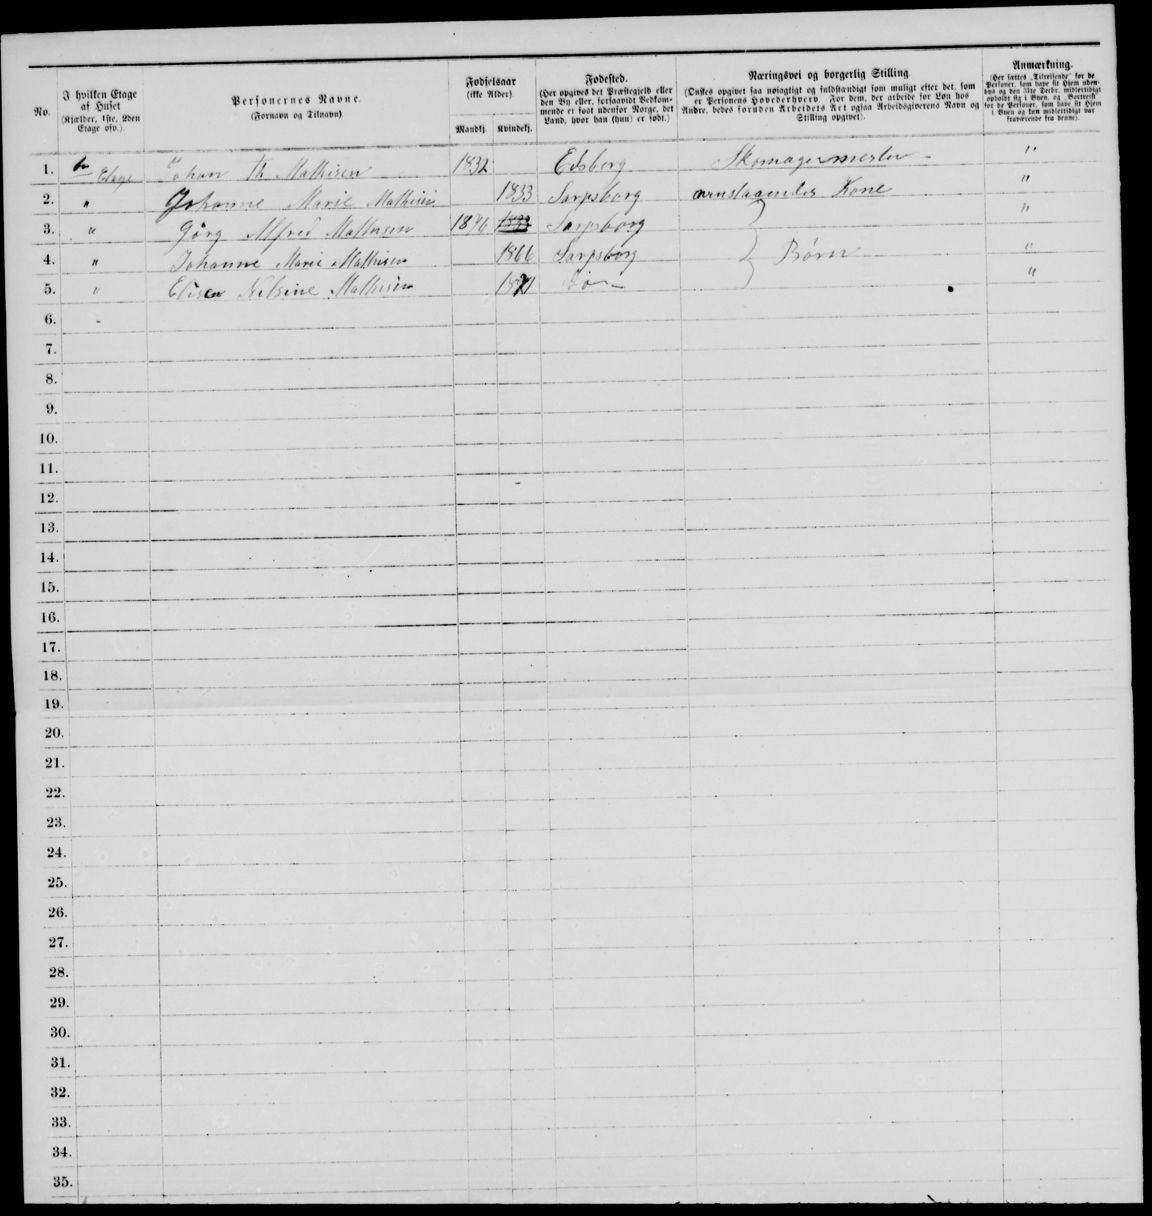 No.
I hvilken Etage
af Huset
(Kjælder, 1ste, 2den
Etage osv.).
Personernes Navne.
(Fornavn og Tilnavn)
Fødselsaar
(ikke Alder)
Mandkj.
Kvindekj.
Fødested.
(Her opgives det Præstegjeld eller
den By eller, forsaavidt Vedkom-
mende er født udenfor Norge, det
Land, hvor han (hun) er født.)
Næringsvei og borgerlig Stilling
(Ønskes opgivet saa nøiagtigt og fuldstændigt som muligt efter det, som
er Personens Hovederhverv. For dem, der arbeide for Løn hos
Andre, bedes foruden Arbeidets Art ogsaa Arbeidsgiverens Navn og
Stilling opgivet).
Anmærkning.
(Her sættes „Tilreisende" for de
Personer, som have sit Hjem uden-
bys og den 31te Decbr. midlertidigt
opholdt sig i Byen, og „Bortreist"
for de Personer, som have sit Hjem
i Byen og kun midlertidigt var
fraværende fra denne).
1. Etage Johan Th Mathisen 1832 Edsberg Skomagermester "
2. " Johanne Marie Mathisen 1833 Sarpsborg Kone "
3. " Görg Alfred Mathisen 1876 1833 Sarpsborg "
4. " Johanne Marie Mathisen 1866 Sarpsborg Børn "
5. " Nilsine Mathisen 1871 "
6.
7.
8.
9.
10.
11.
12.
13.
14.
15.
16.
17.
18.
19.
20.
21.
22.
23.
24.
25.
26.
27.
28.
29.
30.
31.
32.
33.
34.
35.